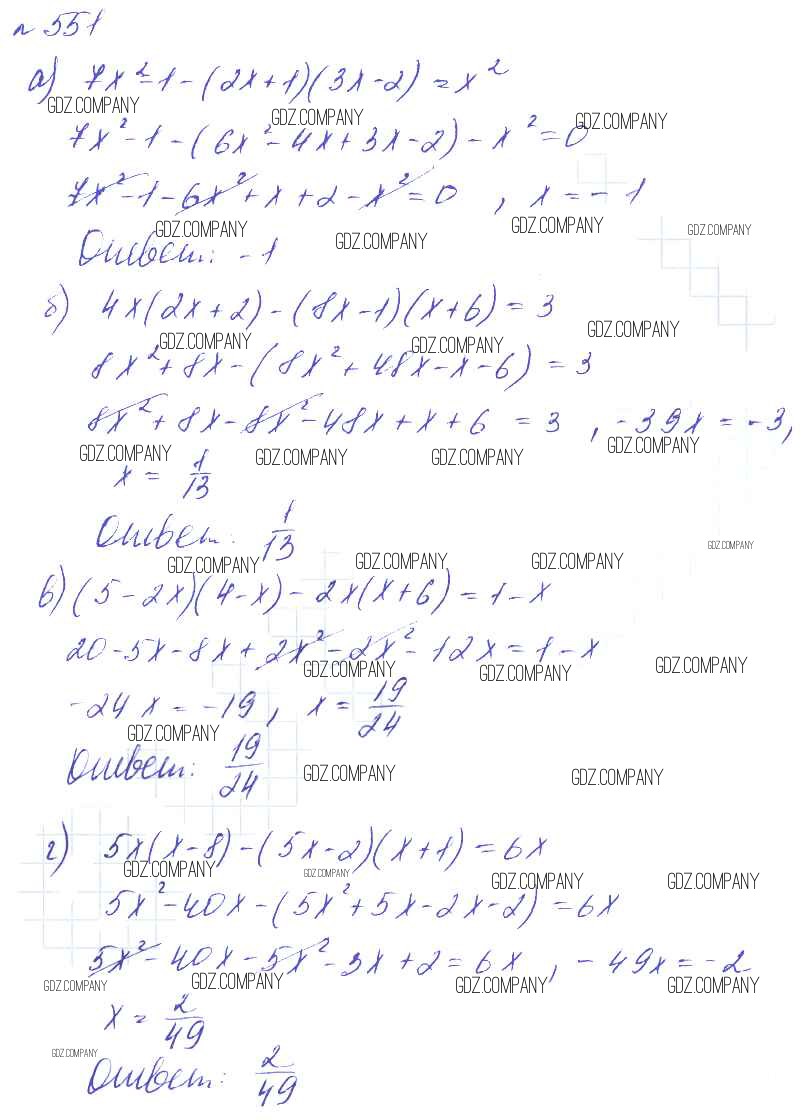 № 551
а) 7x² - 1 - (2x+1)(3x-2) = x²
GDZ.COMPANY GDZ.COMPANY GDZ.COMPANY
7x² - 1 - (6x² - 4x + 3x - 2) - x² = 0
7x² - 1 - 6x² + x + 2 - x² = 0 , x = -1
GDZ.COMPANY GDZ.COMPANY GDZ.COMPANY GDZ.COMPANY
Ответ: -1
б) 4x(2x+2) - (8x-1)(x+6) = 3
GDZ.COMPANY GDZ.COMPANY GDZ.COMPANY
8x² + 8x - (8x² + 48x - x - 6) = 3
8x² + 8x - 8x² - 48x + x + 6 = 3 , -39x = -3,
GDZ.COMPANY GDZ.COMPANY GDZ.COMPANY GDZ.COMPANY
x = 1/13
Ответ: 1/13
GDZ.COMPANY GDZ.COMPANY GDZ.COMPANY GDZ.COMPANY
в) (5-2x)(4-x) - 2x(x+6) = 1-x
20 - 5x - 8x + 2x² - 2x² - 12x = 1-x
GDZ.COMPANY GDZ.COMPANY GDZ.COMPANY
-24x = -19, x = 19/24
GDZ.COMPANY
Ответ: 19/24
GDZ.COMPANY GDZ.COMPANY
г) 5x(x-8) - (5x-2)(x+1) = 6x
GDZ.COMPANY GDZ.COMPANY GDZ.COMPANY GDZ.COMPANY
5x² - 40x - (5x² + 5x - 2x - 2) = 6x
5x² - 40x - 5x² - 3x + 2 = 6x , -49x = -2
GDZ.COMPANY GDZ.COMPANY GDZ.COMPANY GDZ.COMPANY
x = 2/49
GDZ.COMPANY
Ответ: 2/49